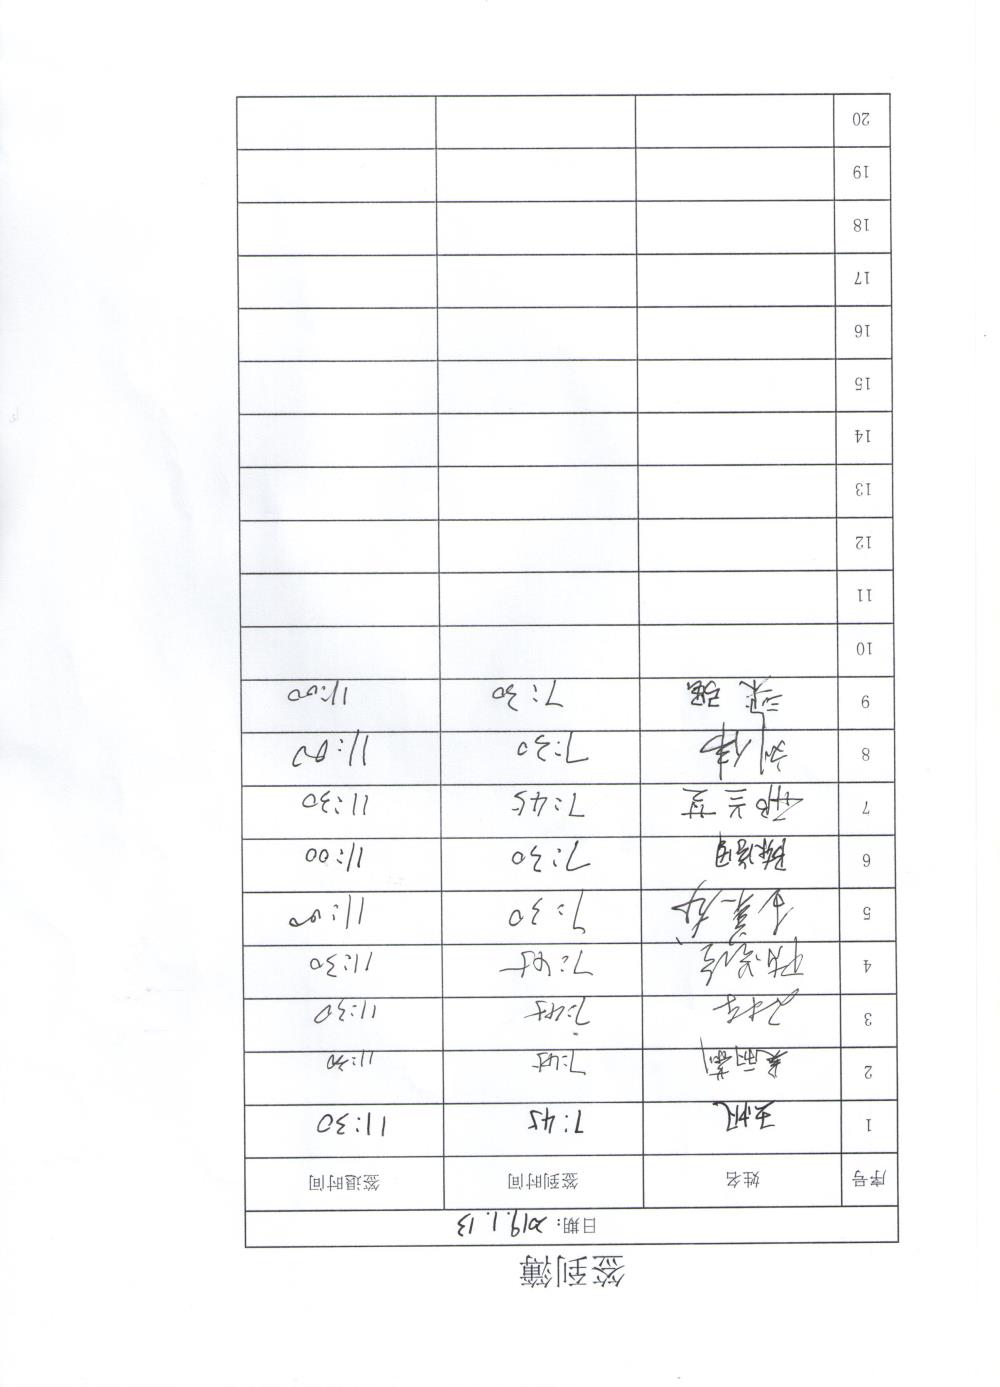 签到簿
日期：2019.1.13
序号 姓名 签到时间 签退时间
1 王帆 7:45 11:30
2 7:45 11:30
3 7:45 11:30
4 7:45 11:30
5 7:30 11:00
6 7:30 11:00
7 7:45 11:30
8 刘伟 7:30 11:00
9 7:30 11:00
10
11
12
13
14
15
16
17
18
19
20